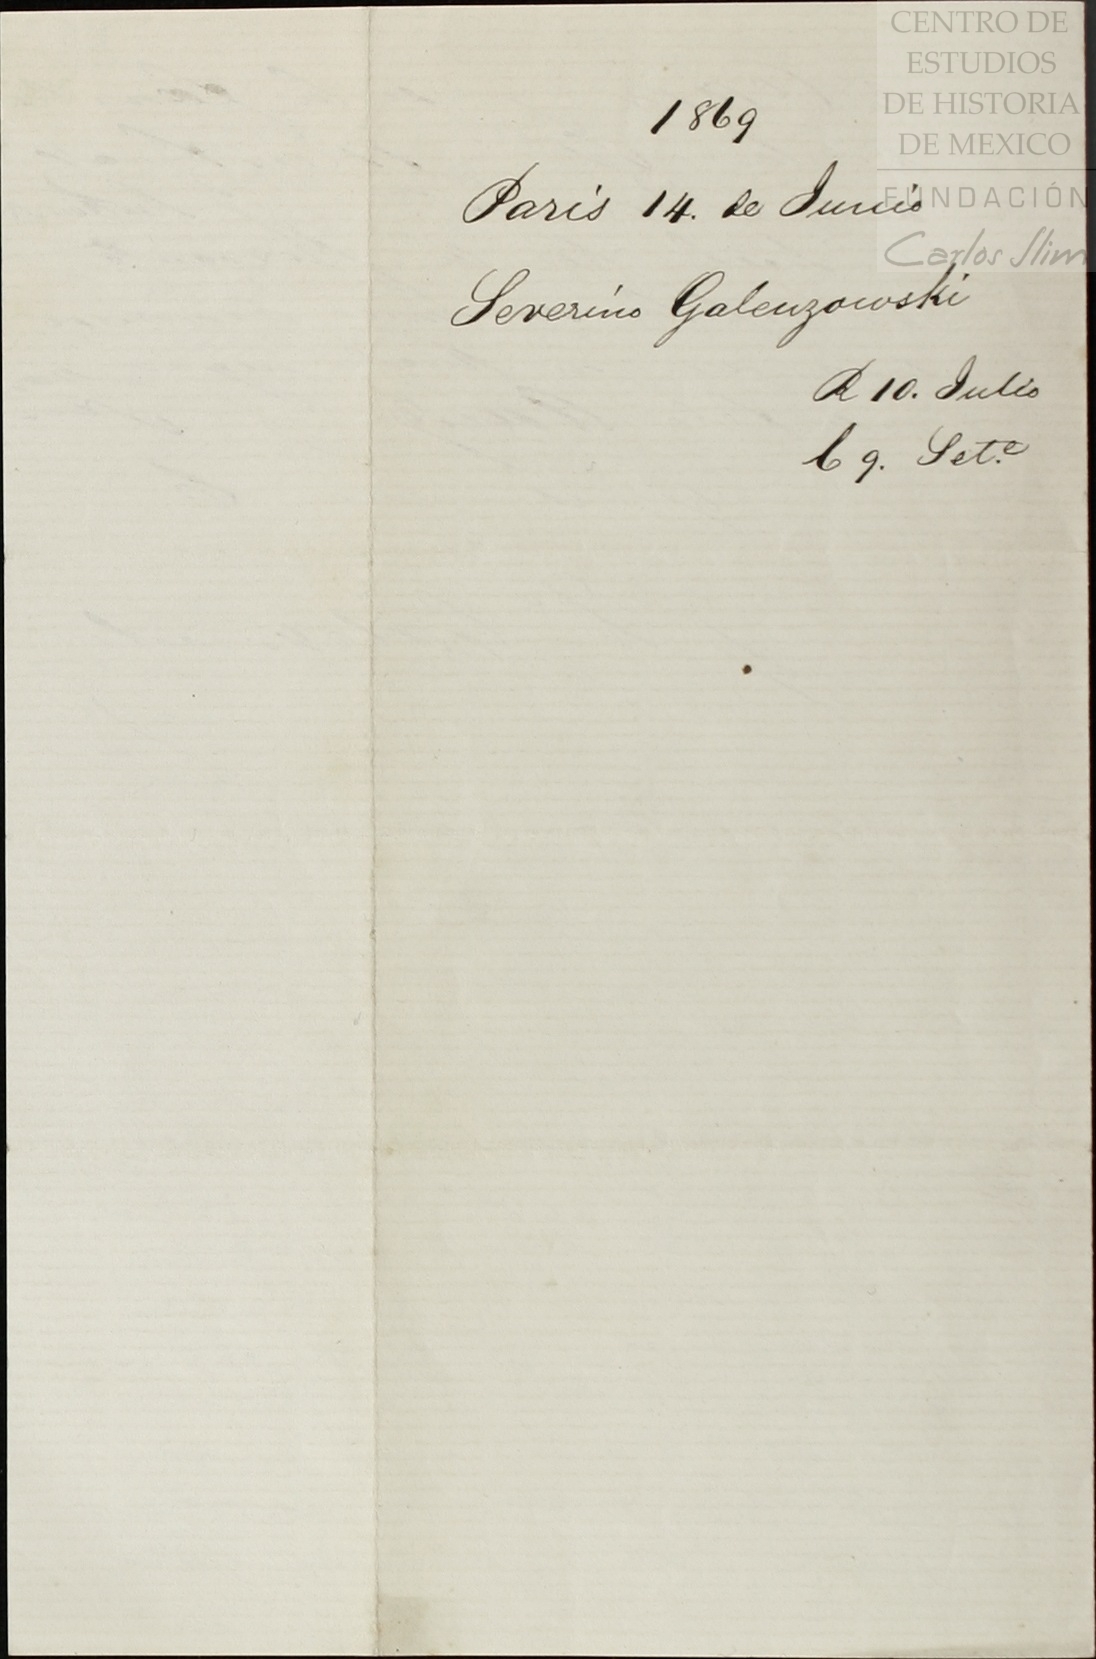 CENTRO DE
ESTUDIOS
DE HISTORIA
DE MEXICO
FUNDACIÓN
Carlos Slim
1869
Paris 14. de Junio
Severino Galenzowski
R 10. Julio
C 9. Set.e